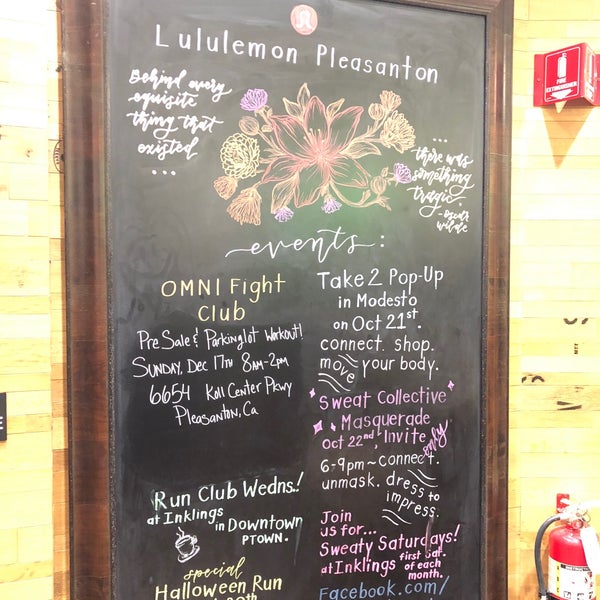 Lululemon Pleasanton
Behind every
exquisite
thing that
existed
...
...
there was
something
tragic.
-oscar
wilde
events:
OMNI Fight
Club
Pre Sale & Parkinglot workout!
Sunday, Dec 17th 8am-2pm
6654 Koll Center Pkwy
Pleasanton, Ca
Run Club Wedns.!
at Inklings
in Downtown
PTOWN.
special
Halloween Run
Take 2 Pop-Up
in Modesto
on Oct 21st.
connect. shop.
move your body.
Sweat Collective
Masquerade
Oct 22nd, Invite only
6-9pm~connect.
unmask. dress to
impress.
Join
us for...
Sweaty Saturdays!
at Inklings first Sat.
of each
month.
Facebook.com/
FIRE
EXTINGUISHER